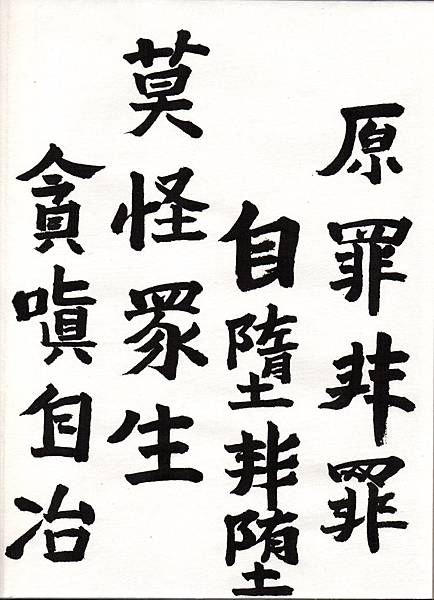 原罪非罪
自墮非堕
莫怪眾生
貪嗔自冶